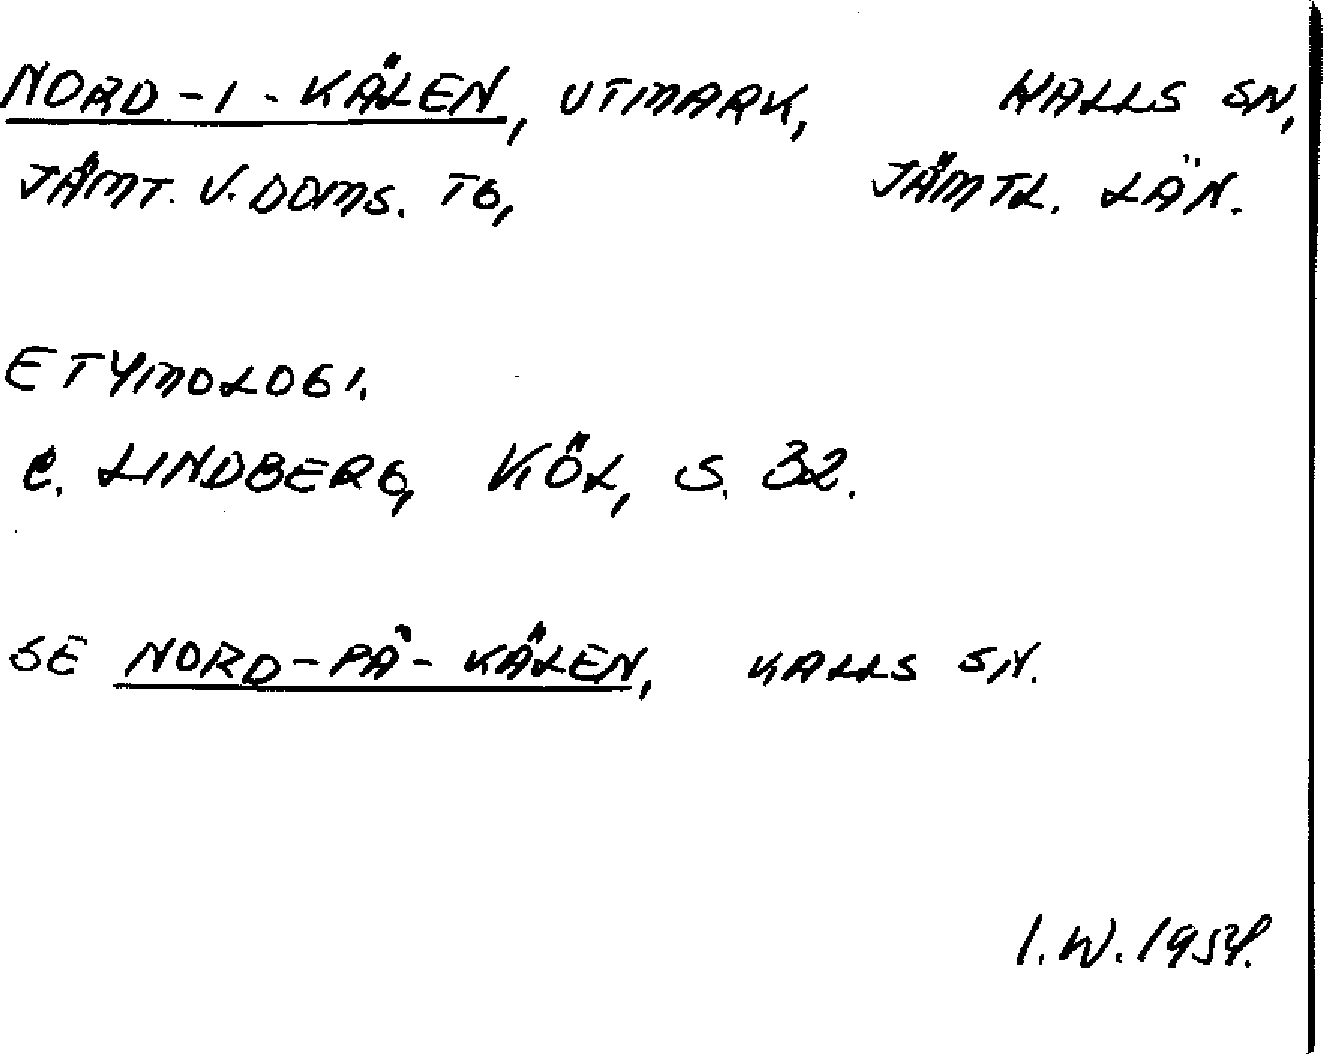 NORD-I-KÄLEN, UTMARK, KALLS SN,
JÄMT. V. DOMS. TG, JÄMTL. LÄN.
ETYMOLOGI.
C. LINDBERG, KÖL, S. 32.
SE NORD-PÅ-KÄLEN, KALLS SN.
I.W. 1954.